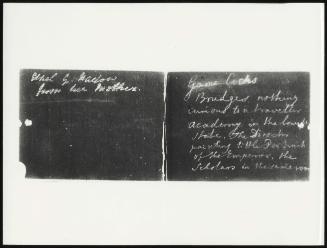 Ethel G. Mallow
from her Mother.
Game Cocks
Bruges nothing
curious to a traveller
academy in the town
State, the Director
painting little Portrait
of the Emperor, the
Scholars in the same room